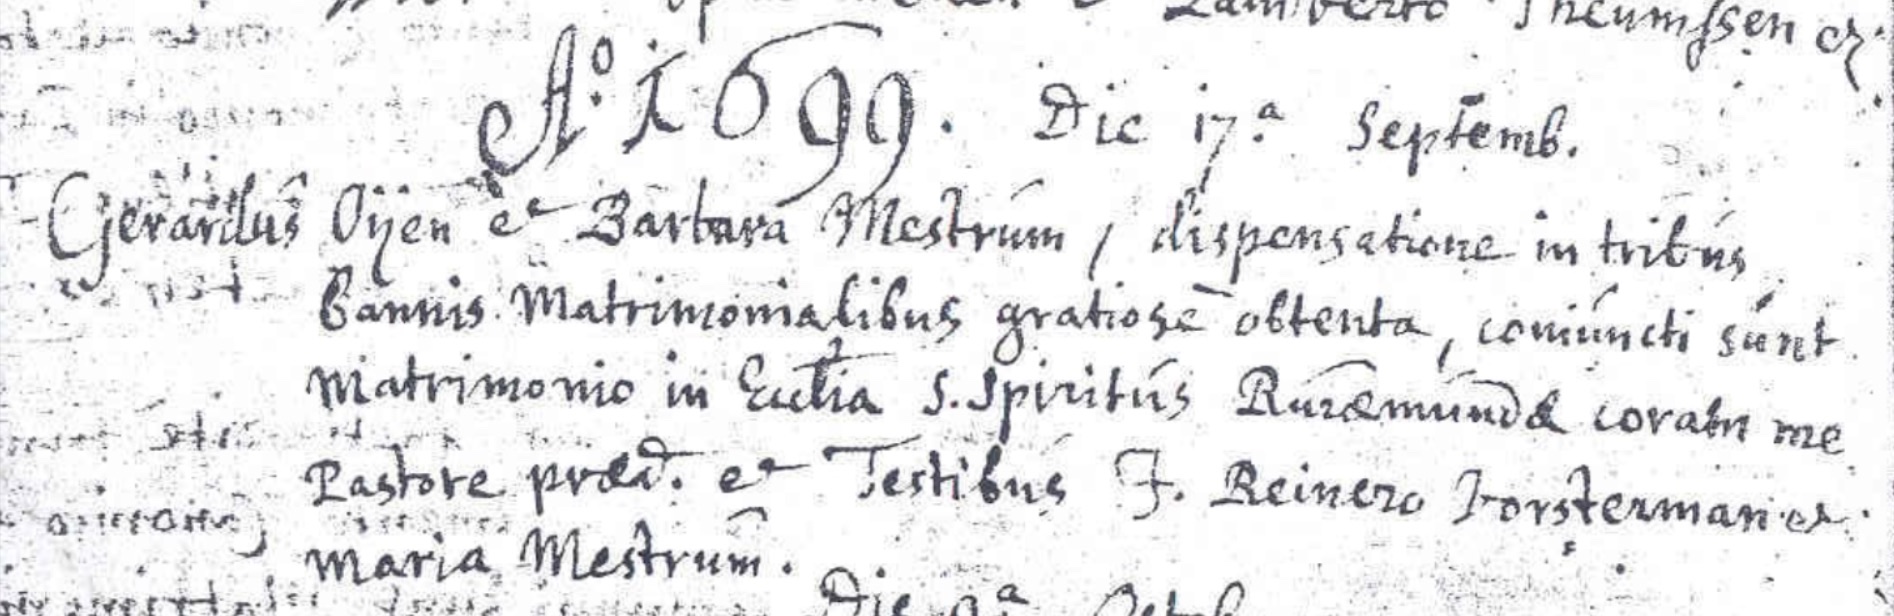 Lamberto Theunissen et
Aº. 1699. Die 17.ª Septemb.
Gerardus Oijen et Barbara Mestrum, dispensatione in tribus
bannis Matrimonialibus gratiose obtenta, coniuncti sunt
Matrimonio in Ecclia S. Spiritus Ruraemundae coram me
Pastore praed. et Testibus F. Reinero Forsterman et
Maria Mestrum.
Die 9ª Octob